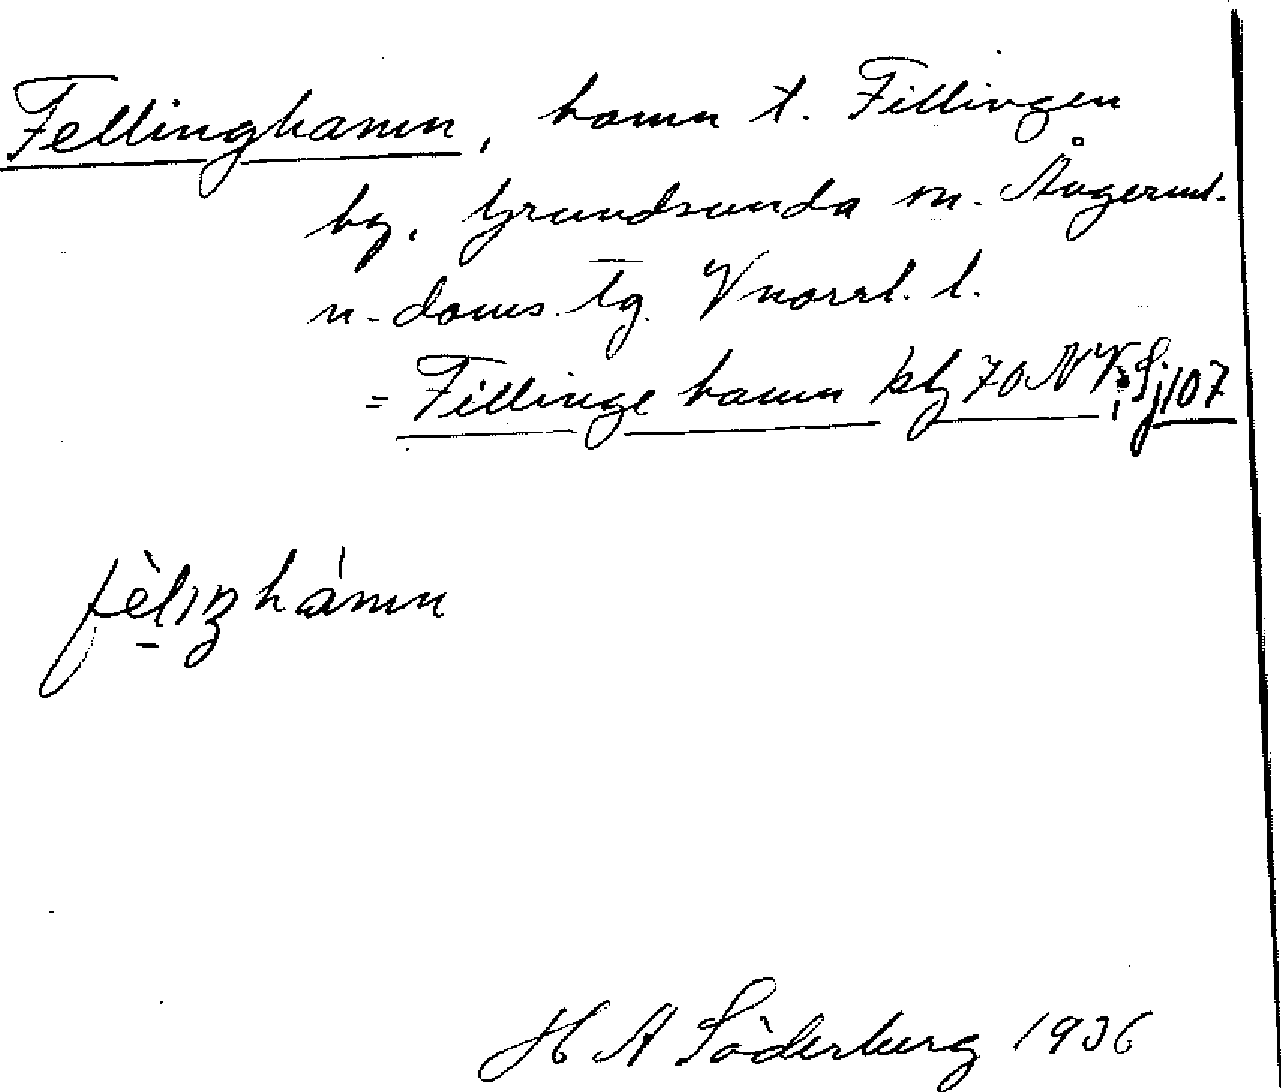 Fellinghamn, hamn t. Fillingen
by. Grundsunda sn. Ångerml.
n. doms. tg. Vnorrl. l.
= Fillinge hamn kbl 70 NV; Sj107
fèlıŋhámn
H A Söderberg 1936